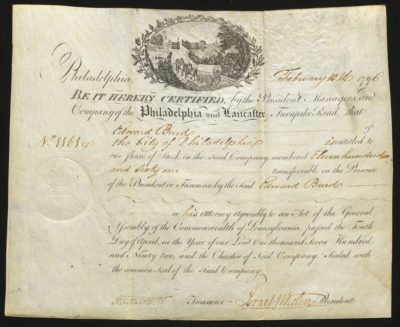 Philadelphia February 10th 1796
BE IT HEREBY CERTIFIED, by the President, Managers, and
Company of the Philadelphia and Lancaster Turnpike Road, that
Edward Burd of
No. 1161 the City of Philadelphia is entitled to
one Share of Stock in the said Company, numbered Eleven hundred
and sixty one transferable in the Presence
of the President or Treasurer, by the said Edward Burd
or his Attorney Agreeably to an Act of the General
Assembly of the Commonwealth of Pennsylvania, passed the Ninth
Day of April, in the Year of our Lord One thousand Seven Hundred
and Ninety two, and the Charter of said Company. Sealed with
the common Seal of the said Company.
Treasurer Israel Whelen President